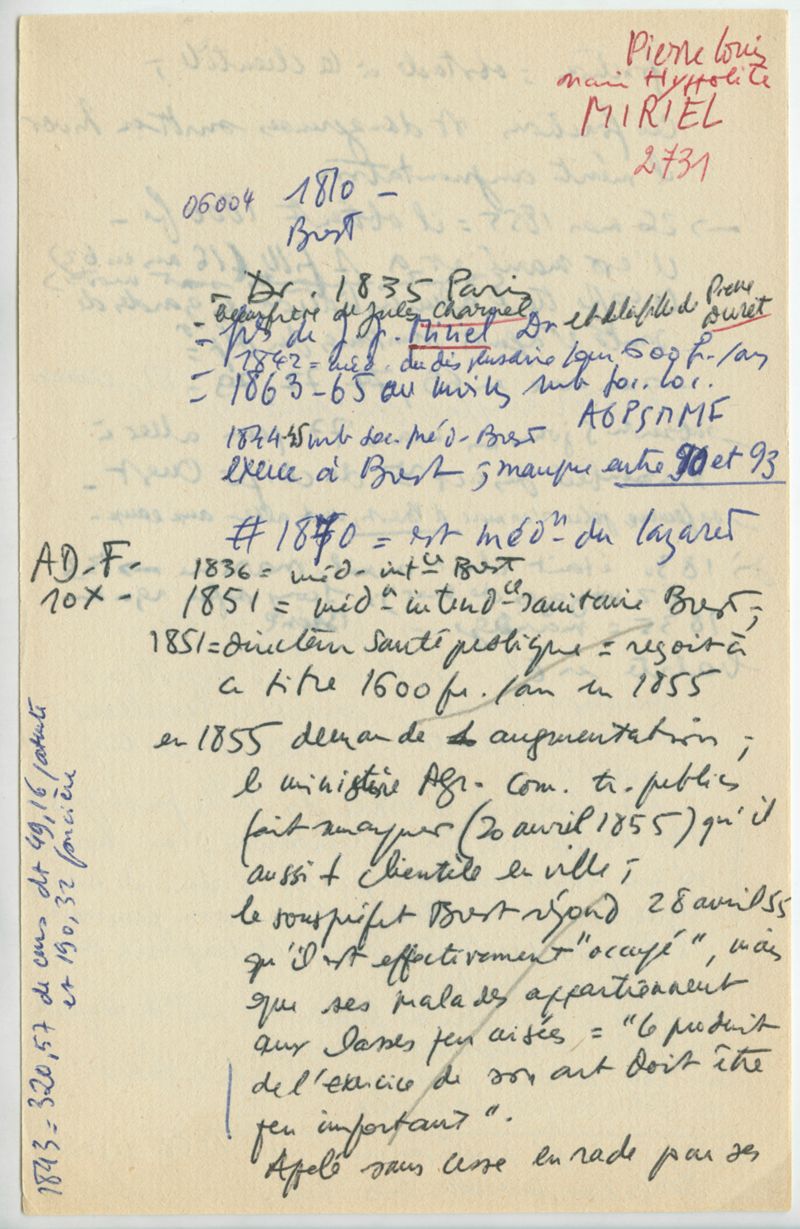 Pierre Louis
Marie Hyppolite
MIRIEL
2731
06004 1810 -
Brest
- Dr. 1835 Paris
- beau frère de Jules Charmel et de la fille de Pierre Duret
= fils de J. J. Miriel Dr
- 1842 = méd. du dispensaire pour 600 fr. / an
= 1863-65 au moins mb soc. loc.
AGPSMMF
1844-45 mb soc. méd. Brest
exerce à Brest ; manque entre 90 et 93
# 1870 = est médn du lazaret
AD.F. 1836 = méd. intce Brest
10X - 1851 = médn intendce sanitaire Brest ;
1851 = directeur Santé publique = reçoit à
ce titre 1600 fr. / an en 1855
en 1855 demande augmentation ;
le ministère Agr. Com. tr. publics
fait remarquer (20 avril 1855) qu'il
aussi + clientèle en ville ;
le sous préfet Brest répond 28 avril 55
qu'il est effectivement "occupé", mais
que ses malades appartiennent
aux classes peu aisées = "le produit
de l'exercice de son art doit être
peu important".
Appelé sans cesse en rade par ses
1843 = 320,57 de cens dt 49,16 / patente
et 190,32 foncière